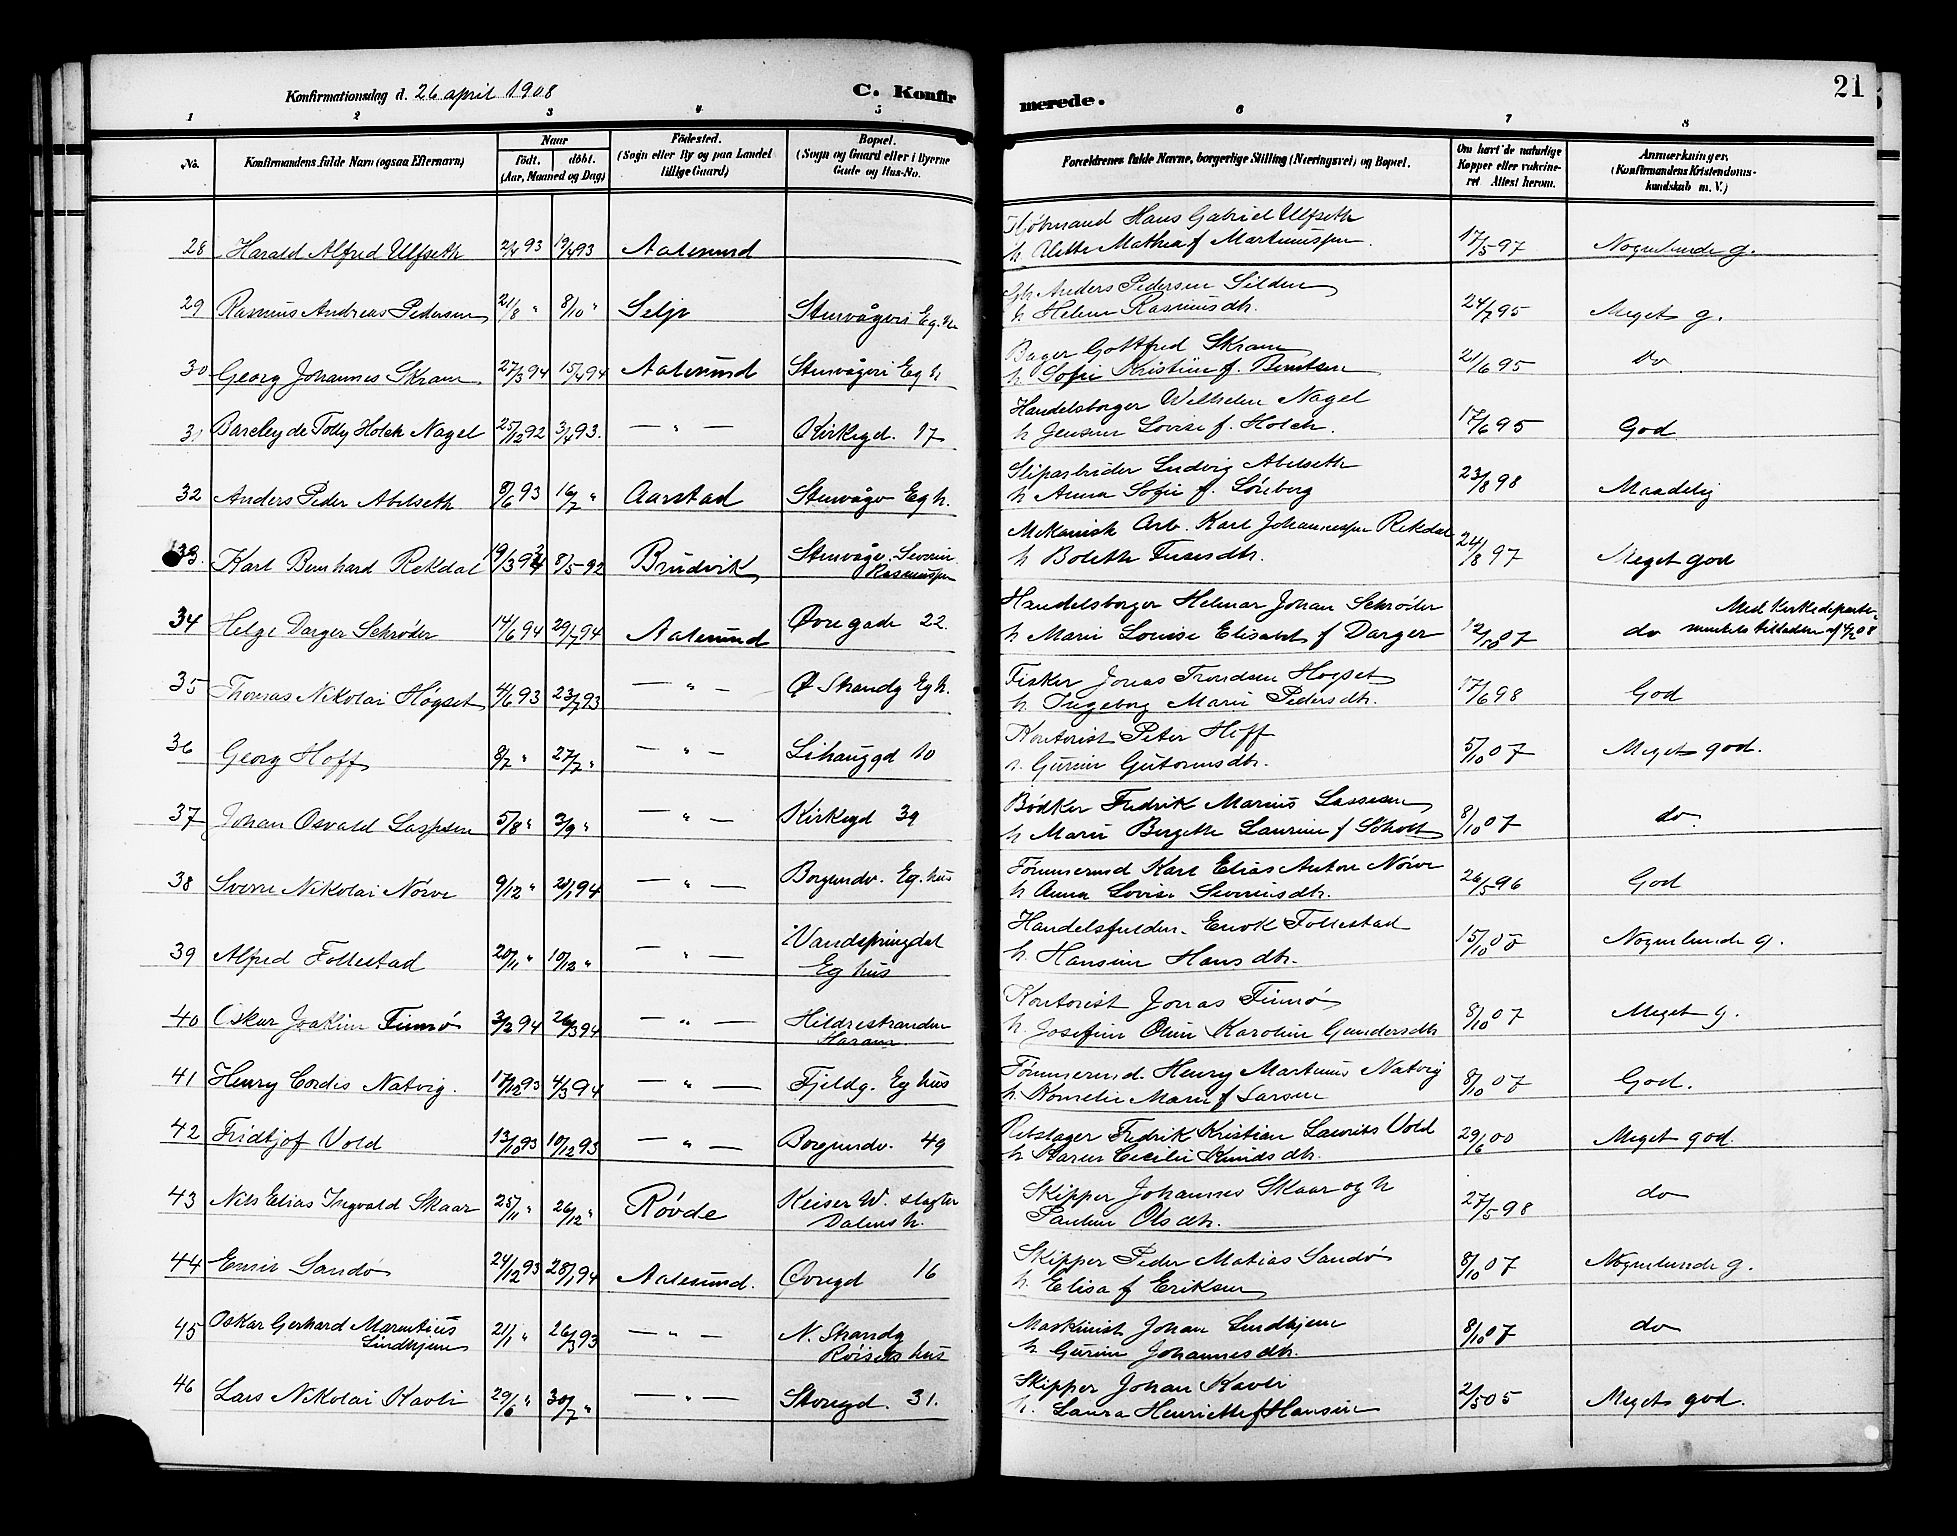 Konfirmationsdag d. 26 april 1908
C. Konfirmerede.
21
1 2 3 4 5 6 7 8
No.
Konfirmandens fulde Navn (ogsaa Efternavn)
Naar
födt. döbt.
(Aar, Maaned og Dag)
Födested.
(Sogn eller By og paa Landet
tillige Gaard)
Bopæl.
(Sogn og Gaard eller i Byerne
Gade og Hus-No.
Forældrenes fulde Navne, borgerlige Stilling (Næringsvei) og Bopæl.
Om havt de naturlige
Kopper eller vakcine-
ret Attest herom.
Anmærkninger.
(Konfirmandens Kristendoms-
kundskab m. V.)
28 Harald Alfred Ulfseth 2/4 93 19/4 93 Aalesund
Hans Gabriel Ulfseth
h Mathea f Martinussen. 17/5 97 Nogenlunde g.
29 Rasmus Andreas Pedersen 21/8 " 8/10 " Selje Stenvågen Eg. h
Anders Pedersen Silden
h Helene Rasmusdtr. 24/7 95 Meget g.
30 Georg Johannes Skram 27/3 94 15/4 94 Aalesund Stenvågen Eg h
Bager Gottfred Skram
h Sofie Kristine f. Berntsen 21/6 95 do
31 Barcley de Tolly Holck Nagel 25/12 92 3/4 93. — " — Kirkegd. 17
Handelsborger Wilhelm Nagel
h Jensine Lovise f. Holck. 17/6 95 God
32 Anders Peder Abelseth 8/6 93 16/7 " Aarstad Stenvågv Eg h.
Sliparbeider Ludvig Abelseth
h Anna Sofie f. Lönberg 23/8 98 Maadelig
33. Karl Bernhard Rekdal 19/3 92 8/5-92 Brudvik Stenvågv. Severin
Rasmussen
Mekanisk Arb. Karl Johannessen Rekdal
h Bolette Tusesdtr. 24/8 97 Meget god
34 Helge Darger Schrøder 14/6 94 29/7 94 Aalesund Øvregade 22.
Handelsborger Helmar Johan Schrøder
h Marie Louise Elisabet f Darger 12/10 07 do
Med Kirkedeparte-
mentets tilladelse af 4/2 08
35 Thomas Nikolai Høgset 4/6 93 23/7 93 — " — Ø Strandg Eg h.
Fisker Jonas Trondsen Høgset
h. Ingeborg Marie Pedersdtr. 17/6 98 God
36 Georg Hoff 8/7 " 27/7 " — " — Lihauggd 10
Kontorist Peter Hoff
h. Gurine Gutormsdtr. 5/10 07 Meget god.
37 Johan Osvald Lassesen 5/8 " 3/9 " — " — Kirkegd 39
Bødker Fredrik Marius Lassesen
h Marie Bergethe Laurine f Söholt 8/10 07 do
38 Sverre Nikolai Nörve 9/12 " 21/1 94 — " — Borgundv. Eg. hus
Tömmermd Karl Elias Anton Nörve
h Anna Lovise Severinsdtr. 26/5 96 God
39 Alfred Follestad 20/11 " 10/12 " — " — Vandspringdal
Eg hus
Handelsfuldm. Enok Follestad
h. Hansine Hansdtr. 15/10 00 Nogenlunde g.
40 Oskar Joakim Finnö 3/2 94 26/3 94 — " — Hildrestranden
Haram.
Kontorist Jonas Finnö
h. Josefine Oline Karoline Gundersdtr 8/10 07 Meget g.
41 Henry Cordis Natvig. 17/12 93 4/3 94 — " — Fjeldg. Eg hus
Tömmermd. Henry Martinus Natvig
h. Kornelie Marie f Larsen 8/10 07 God.
42 Fridtjof Vold 13/10 93 10/12 93 — " — Borgundv. 49
Rebslager Fredrik Kristian Laurits Vold
h Karen Cecilie Knudsdtr. 29/6 00 Meget god.
43 Nils Elias Ingvald Skaar 25/11 " 26/12 " Røvde Keiser W. slagter
Dalens h.
Skipper Johannes Skaar og h
Pauline Olsdtr. 27/5 98 do
44 Emil Sandö 24/12 93 28/1 94 Aalesund. Øvregd 16
Skipper Peder Matias Sandö
h. Elisa f Eriksen 8/10 07 Nogenlunde g.
45 Oskar Gerhard Marentius
Lindkjenn 21/1 " 26/3 93 — " — N. Strandg
Röisets hus
Maskinist Johan Lindkjenn
h. Gurine Johannesdtr. 8/10 07 do
46 Lars Nikolai Kavli 29/6 " 30/7 " — " — Storegd. 31.
Skipper Johan Kavli
h. Laura Henriette f Hansen 2/5 05 Meget god.